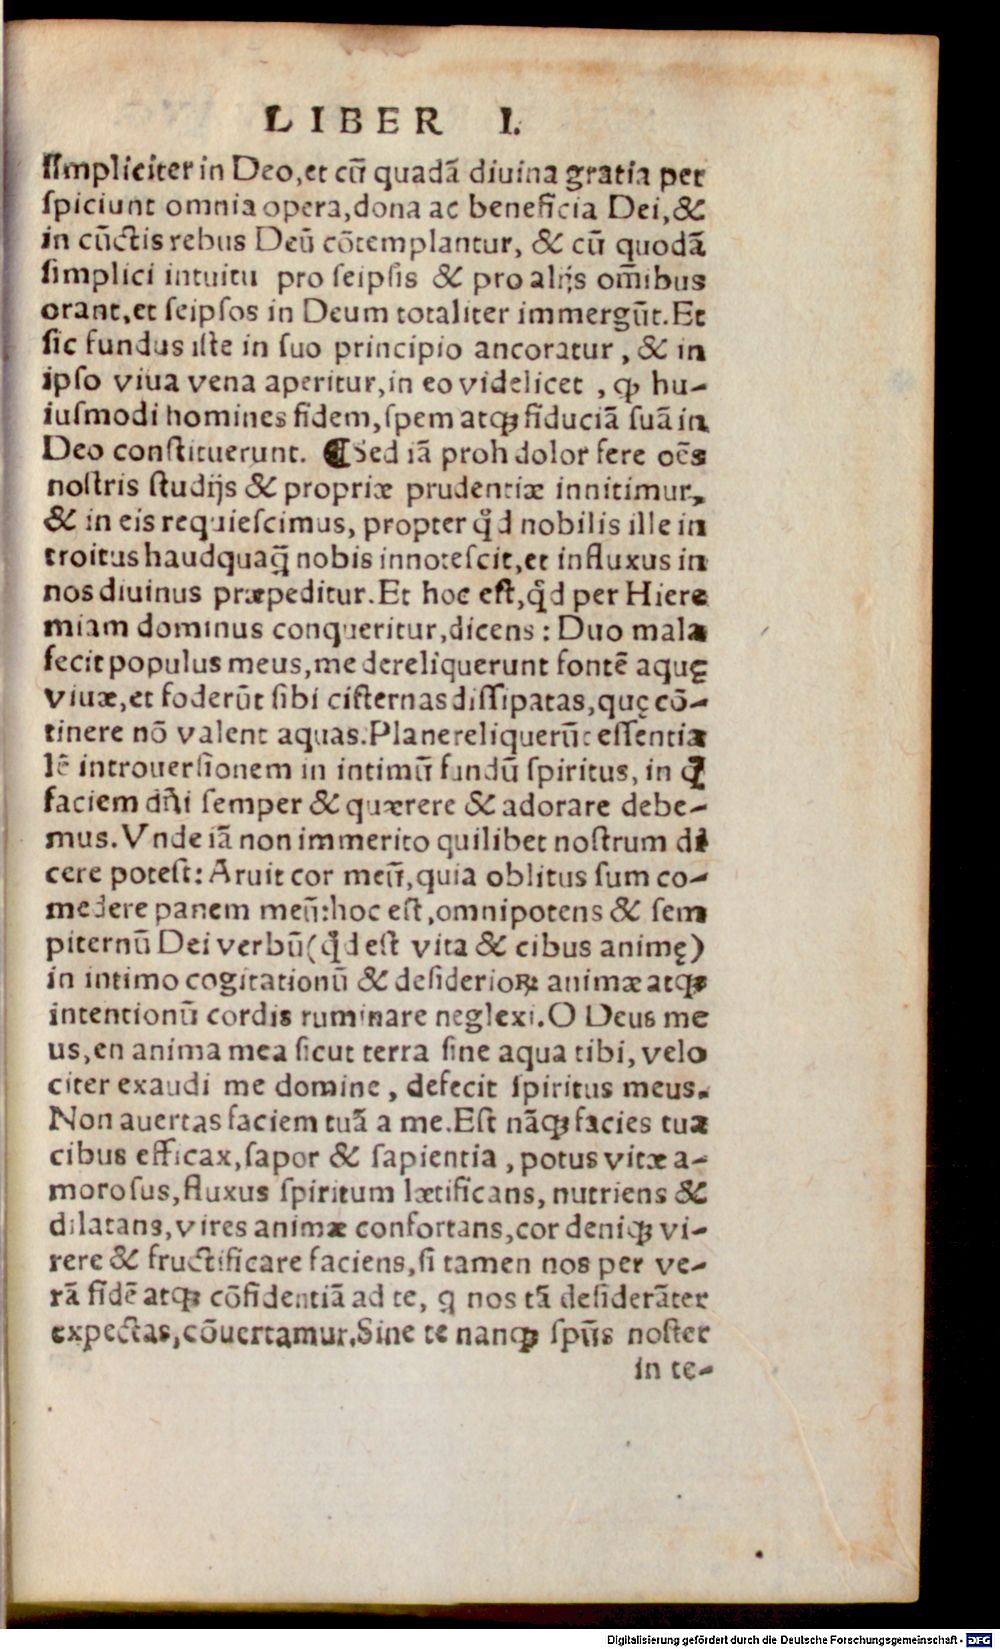 LIBER I.
ſimpliciter in Deo,et cũ quadã diuina gratia per
ſpiciunt omnia opera,dona ac beneficia Dei,&
in cũctis rebus Deũ cõtemplantur, & cũ quodã
ſimplici intuitu pro ſeipſis & pro alijs om̃ibus
orant,et ſeipſos in Deum totaliter immergũt.Et
ſic fundus iſte in ſuo principio ancoratur, & in
ipſo viua vena aperitur,in eo videlicet , ꝙ hu-
iuſmodi homines fidem,ſpem atqꝫ fiduciã ſuã in
Deo conſtituerunt. ¶Sed iã proh dolor fere oẽs
noſtris ſtudijs & propriæ prudentiæ innitimur,
& in eis requieſcimus, propter qd̓ nobilis ille in
troitus haudquaq̃ nobis innoteſcit,et influxus in
nos diuinus præpeditur.Et hoc eſt,qd̓ per Hiere
miam dominus conqueritur,dicens: Duo mala
fecit populus meus,me dereliquerunt fontẽ aquę
viuæ,et foderũt ſibi ciſternas diſſipatas,quę cõ-
tinere nõ valent aquas.Plane reliquerũt eſſentia
lẽ introuerſionem in intimũ fundũ ſpiritus, in q̃
faciem dñi ſemper & quærere & adorare debe-
mus.Vnde iã non immerito quilibet noſtrum di
cere poteſt: Aruit cor meũ,quia oblitus ſum co-
medere panem meũ:hoc eſt,omnipotens & ſem
piternũ Dei verbũ(qd̓ eſt vita & cibus animę)
in intimo cogitationũ & deſiderioꝝ animæ atqꝫ
intentionũ cordis ruminare neglexi.O Deus me
us,en anima mea ſicut terra ſine aqua tibi, velo
citer exaudi me domine, defecit ſpiritus meus.
Non auertas faciem tuã a me.Eſt nãqꝫ facies tua
cibus efficax,ſapor & ſapientia, potus vitæ a-
moroſus,fluxus ſpiritum lætificans, nutriens &
dilatans,vires animæ confortans,cor deniqꝫ vi-
rere & fructificare faciens,ſi tamen nos per ve-
rã fidẽ atqꝫ cõfidentiã ad te, q nos tã deſiderãter
expectas,cõuertamur.Sine te nanqꝫ ſpũs noſter
in te-
Digitalisierung gefördert durch die Deutsche Forschungsgemeinschaft - DFG